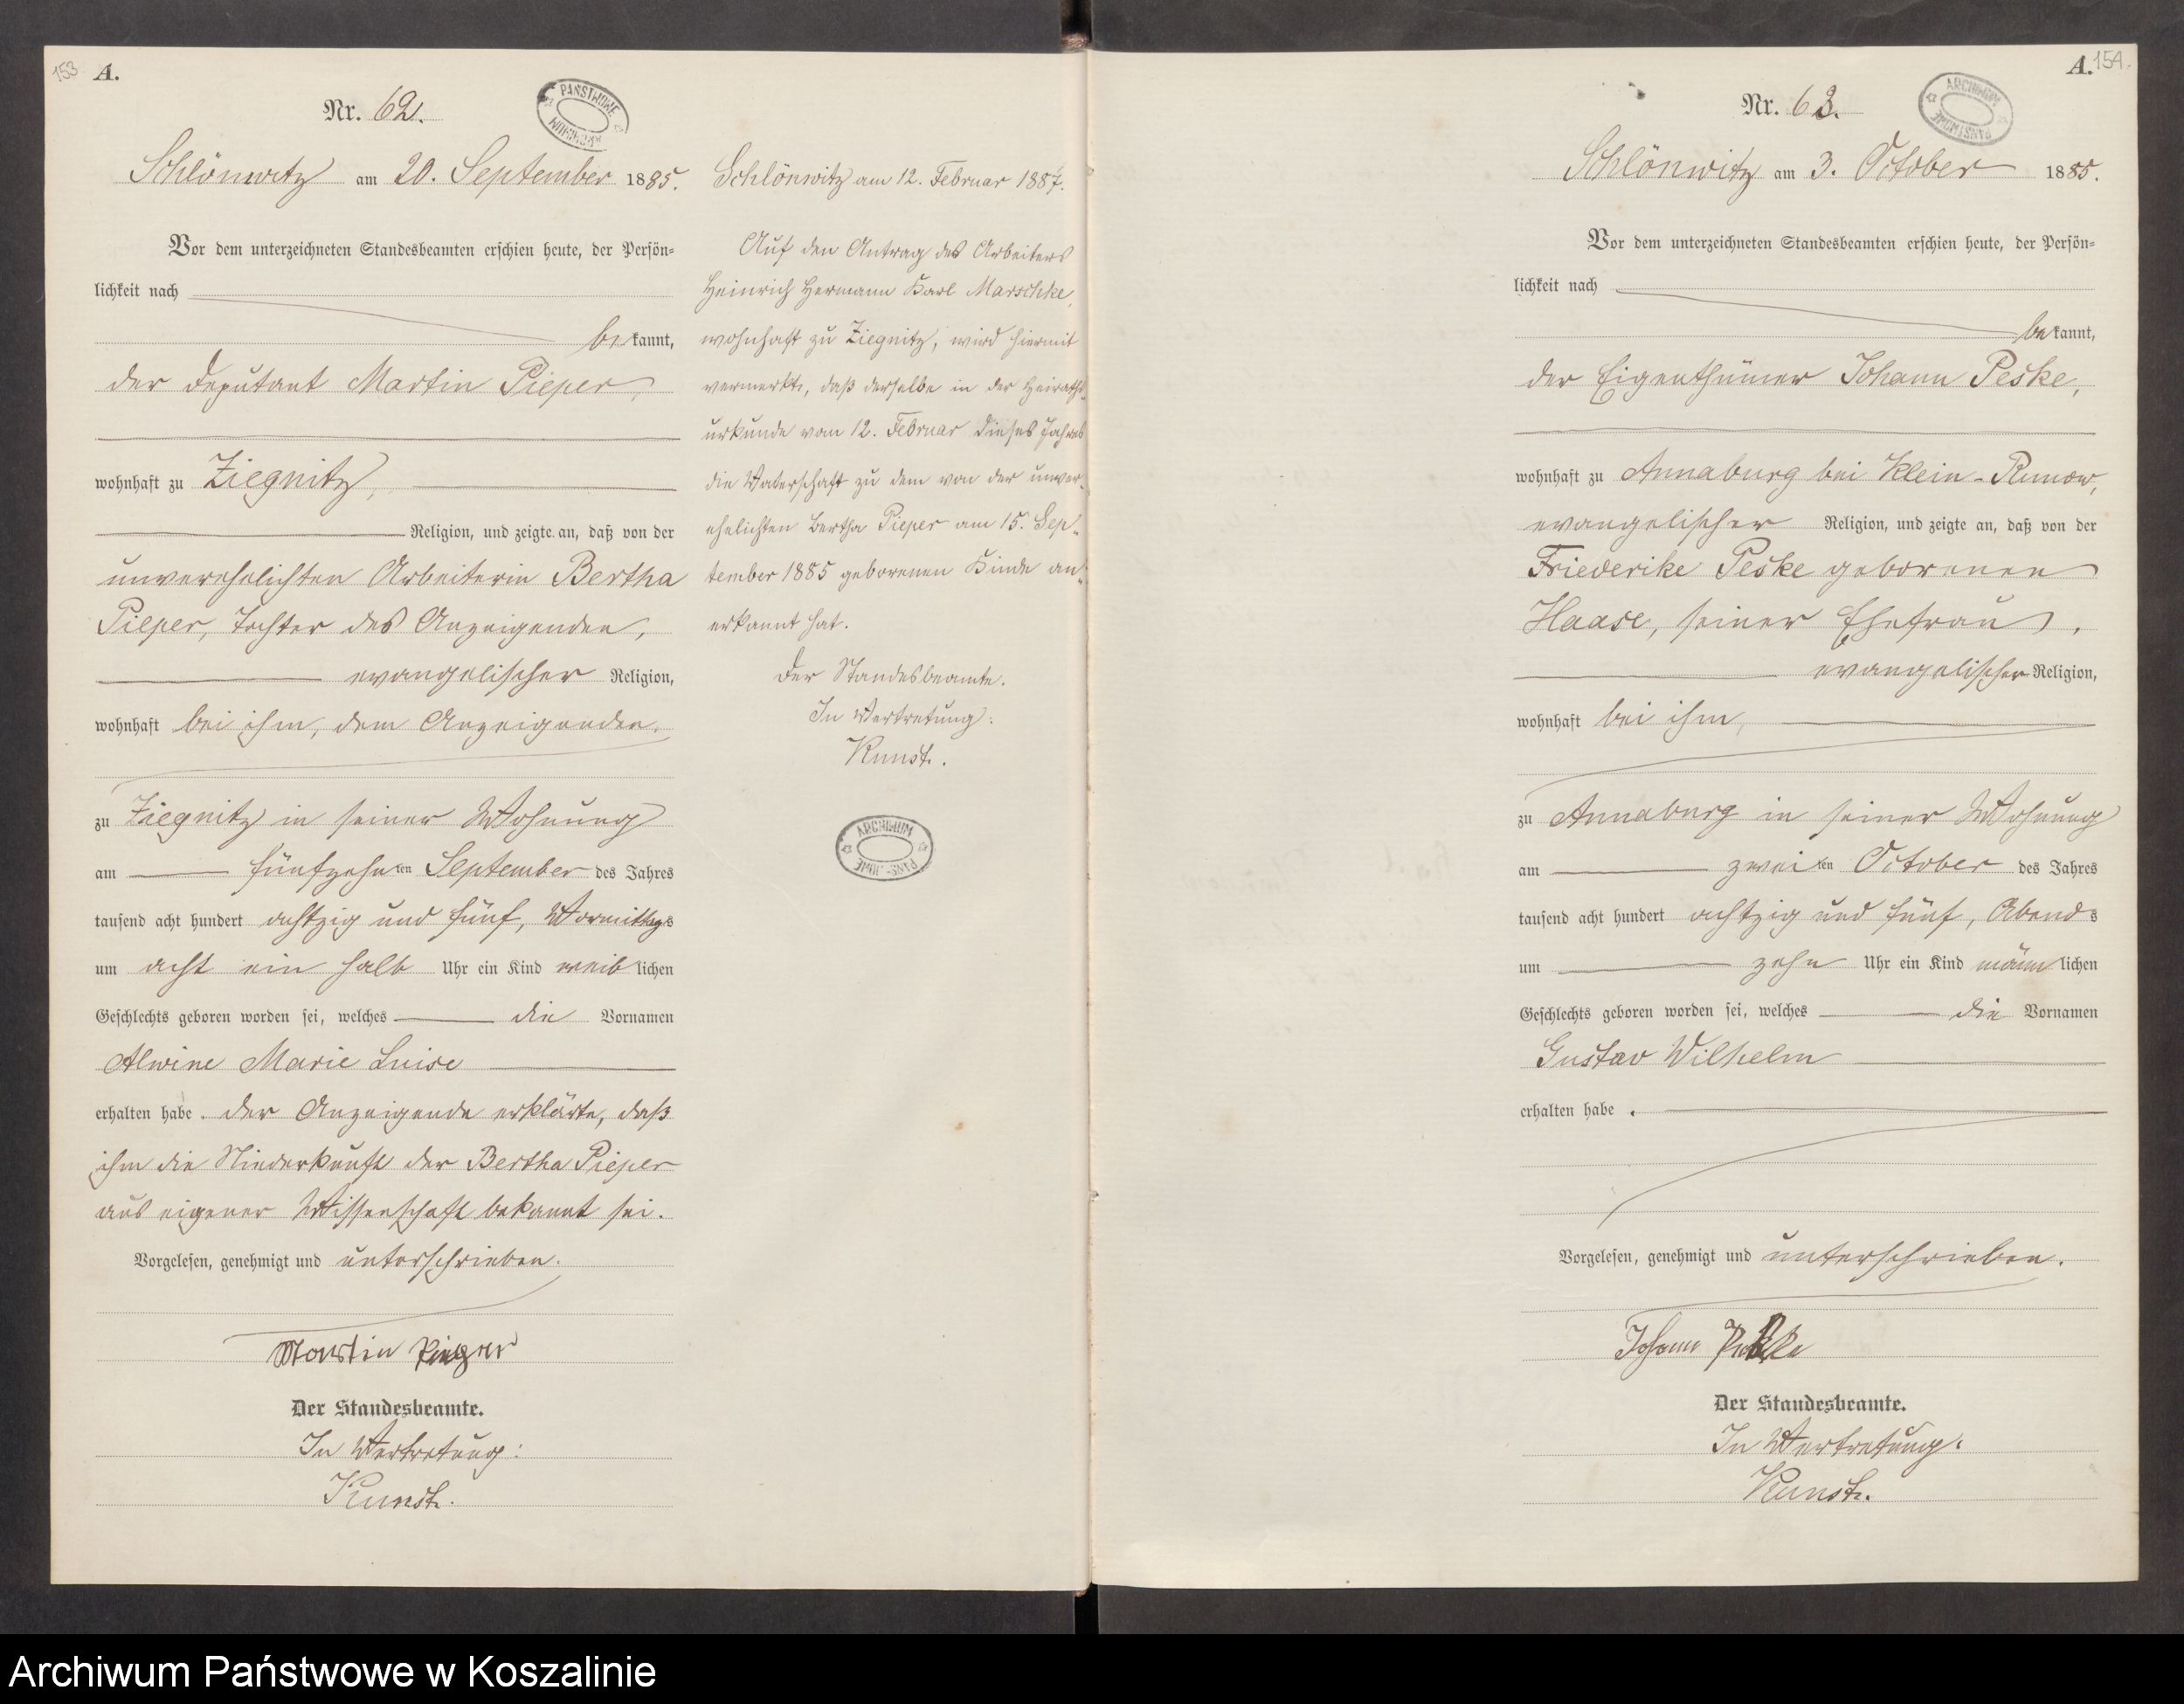 153 A.
Nr. 62.
PAŃSTWOWE
ARCHIWUM
Schlönwitz am 20. September 1885.
Vor dem unterzeichneten Standesbeamten erschien heute, der Persön-
lichkeit nach
bekannt,
der Deputant Martin Pieper,
wohnhaft zu Ziegnitz,
Religion, und zeigte an, daß von der
unverehelichten Arbeiterin Bertha
Pieper, Tochter des Anzeigenden,
evangelischer Religion,
wohnhaft bei ihm, dem Anzeigenden,
zu Ziegnitz in seiner Wohnung
am fünfzehnten September des Jahres
tausend acht hundert achtzig und fünf, Vormittags
um acht ein halb Uhr ein Kind weiblichen
Geschlechts geboren worden sei, welches die Vornamen
Alwine Marie Luise
erhalten habe. Der Anzeigende erklärte, daß
ihm die Niederkunft der Bertha Pieper
aus eigener Wissenschaft bekannt sei.
Vorgelesen, genehmigt und unterschrieben.
Martin Pieper
Der Standesbeamte.
In Vertretung:
Kunst.
Schlönwitz am 12. Februar 1887.
Auf den Antrag des Arbeiters
Heinrich Hermann Karl Marschke,
wohnhaft zu Ziegnitz, wird hiermit
vermerkt, daß derselbe in der Heiraths-
urkunde vom 12. Februar dieses Jahres
die Vaterschaft zu dem von der unver-
ehelichten Bertha Pieper am 15. Sep-
tember 1885 geborenen Kinde an-
erkannt hat.
Der Standesbeamte.
In Vertretung:
Kunst.
ARCHIWUM
PAŃSTWOWE
A. 154.
Nr. 63.
ARCHIWUM
PAŃSTWOWE
Schlönwitz am 3. October 1885.
Vor dem unterzeichneten Standesbeamten erschien heute, der Persön-
lichkeit nach
bekannt,
der Eigenthümer Johann Peske,
wohnhaft zu Annaburg bei Klein-Runow,
evangelischer Religion, und zeigte an, daß von der
Friederike Peske geborenen
Haase, seiner Ehefrau,
evangelischer Religion,
wohnhaft bei ihm,
zu Annaburg in seiner Wohnung
am zweiten October des Jahres
tausend acht hundert achtzig und fünf, Abends
um zehn Uhr ein Kind männlichen
Geschlechts geboren worden sei, welches die Vornamen
Gustav Wilhelm
erhalten habe.
Vorgelesen, genehmigt und unterschrieben.
Johann Peske
Der Standesbeamte.
In Vertretung:
Kunst.
Archiwum Państwowe w Koszalinie